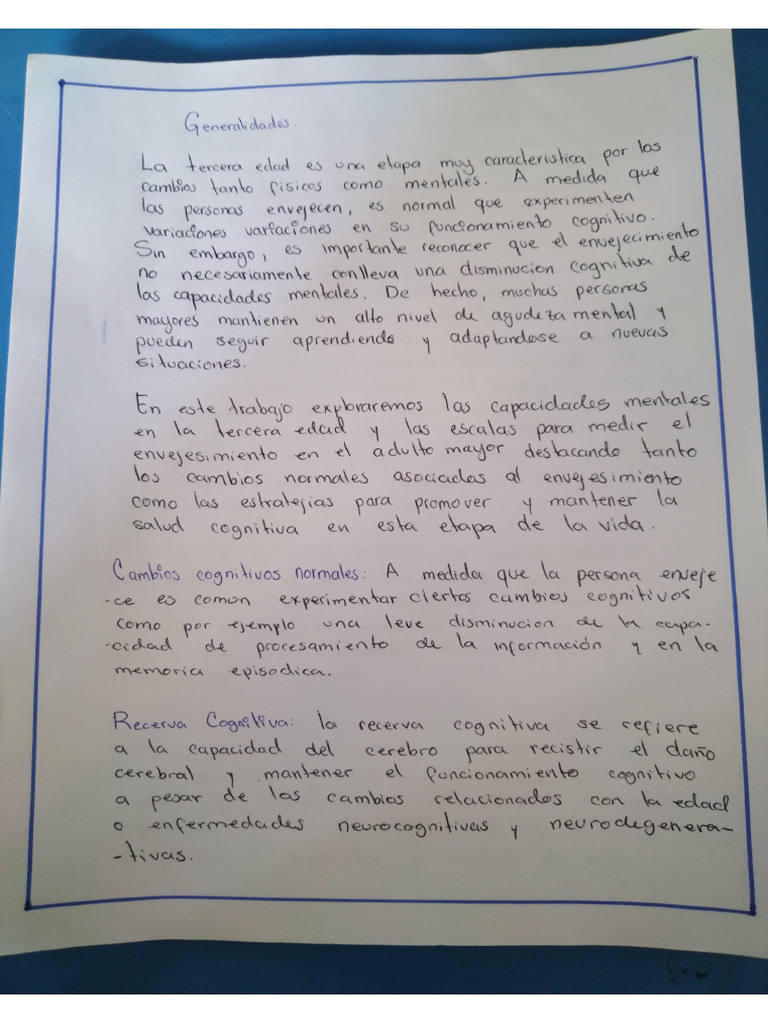 Generalidades.
La tercera edad es una etapa muy caracteristica por los
cambios tanto fisicos como mentales. A medida que
las personas envejecen, es normal que experimenten
variaciones variaciones en su funcionamiento cognitivo.
Sin embargo, es importante reconocer que el envejecimiento
no necesariamente conlleva una disminucion cognitiva de
las capacidades mentales. De hecho, muchas personas
mayores mantienen un alto nivel de agudeza mental y
pueden seguir aprendiendo y adaptandose a nuevas
situaciones.
En este trabajo exploraremos las capacidades mentales
en la tercera edad y las escalas para medir el
envejesimiento en el adulto mayor destacando tanto
los cambios normales asociados al envejesimiento
como las estratejias para promover y mantener la
salud cognitiva en esta etapa de la vida.
Cambios cognitivos normales: A medida que la persona enveje
-ce es comun experimentar ciertos cambios cognitivos
como por ejemplo una leve disminucion de la capa-
-cidad de procesamiento de la información y en la
memoria episodica.
Recerva Cognitiva: la recerva cognitiva se refiere
a la capacidad del cerebro para recistir el daño
cerebral y mantener el funcionamiento cognitivo
a pesar de los cambios relacionados con la edad
o enfermedades neurocognitivas y neurodegenera-
-tivas.